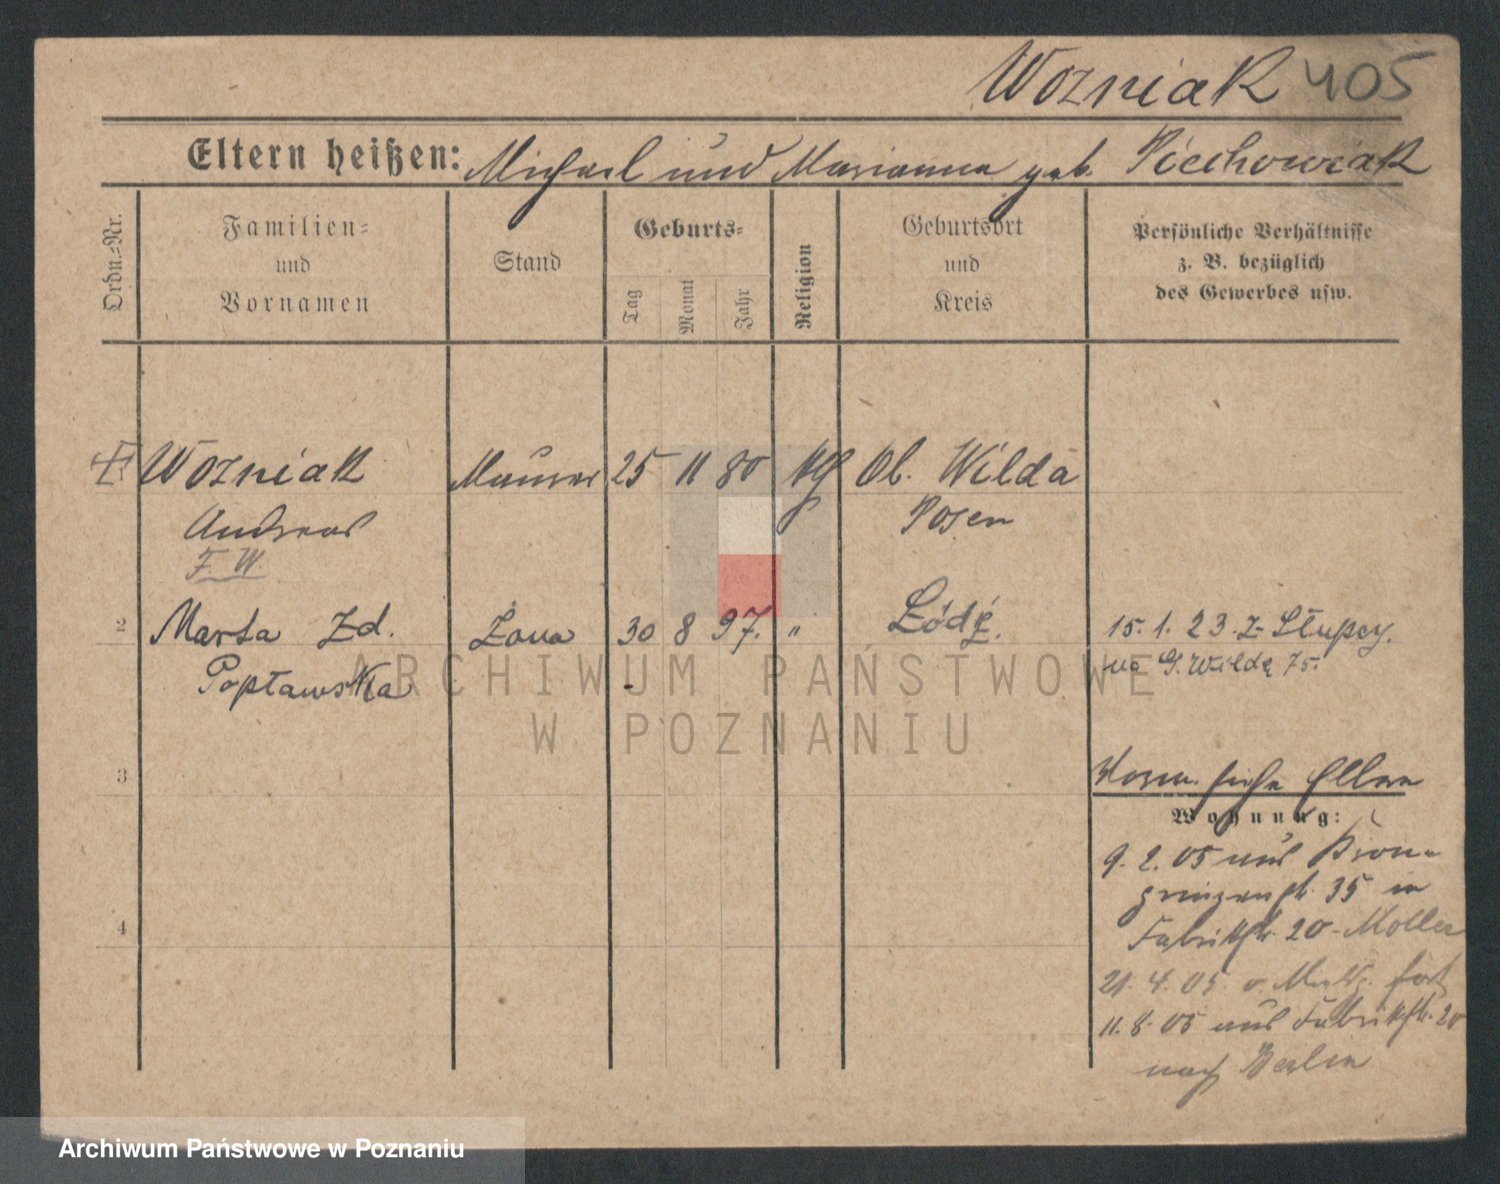 Wozniak 405
Eltern heißen: Michael und Marianna geb. Piechowiak
Ordn.=Nr.
Familien=
und
Vornamen
Stand
Geburts=
Tag
Monat
Jahr
Religion
Geburtsort
und
Kreis
Persönliche Verhältnisse
z. B. bezüglich
des Gewerbes usw.
Wozniak Maurer 25 11 80 kth Ob. Wilda
Andreas Posen
F. W.
2 Marta Zd. Żona 30 8 97. " Łódź. 15. 1. 23. Z Słupcy.
Popławska na G. Wildę 75.
3
siehe Eltern
Wohnung:
9. 2. 05 aus Kron=
prinzenstr. 35 in
Fabrikstr. 20 - Moller
21. 4. 05 fort
11. 8. 05 aus Fabrikstr. 20
nach Berlin
4
ARCHIWUM PAŃSTWOWE
W POZNANIU
Archiwum Państwowe w Poznaniu